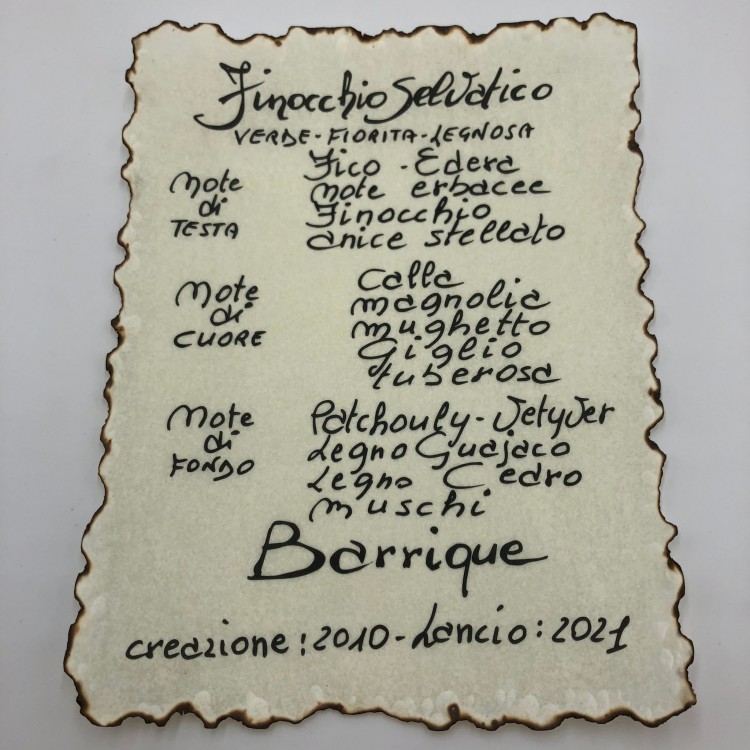 Finocchio Selvatico
VERDE-FIORITA-LEGNOSA
Note di TESTA
Fico - Edera
note erbacee
Finocchio
anice stellato
Note di CUORE
Calla
magnolia
mughetto
Giglio
tuberosa
Note di FONDO
Patchouly - Vetyver
Legno Guajaco
Legno Cedro
muschi
Barrique
creazione: 2010 - Lancio: 2021